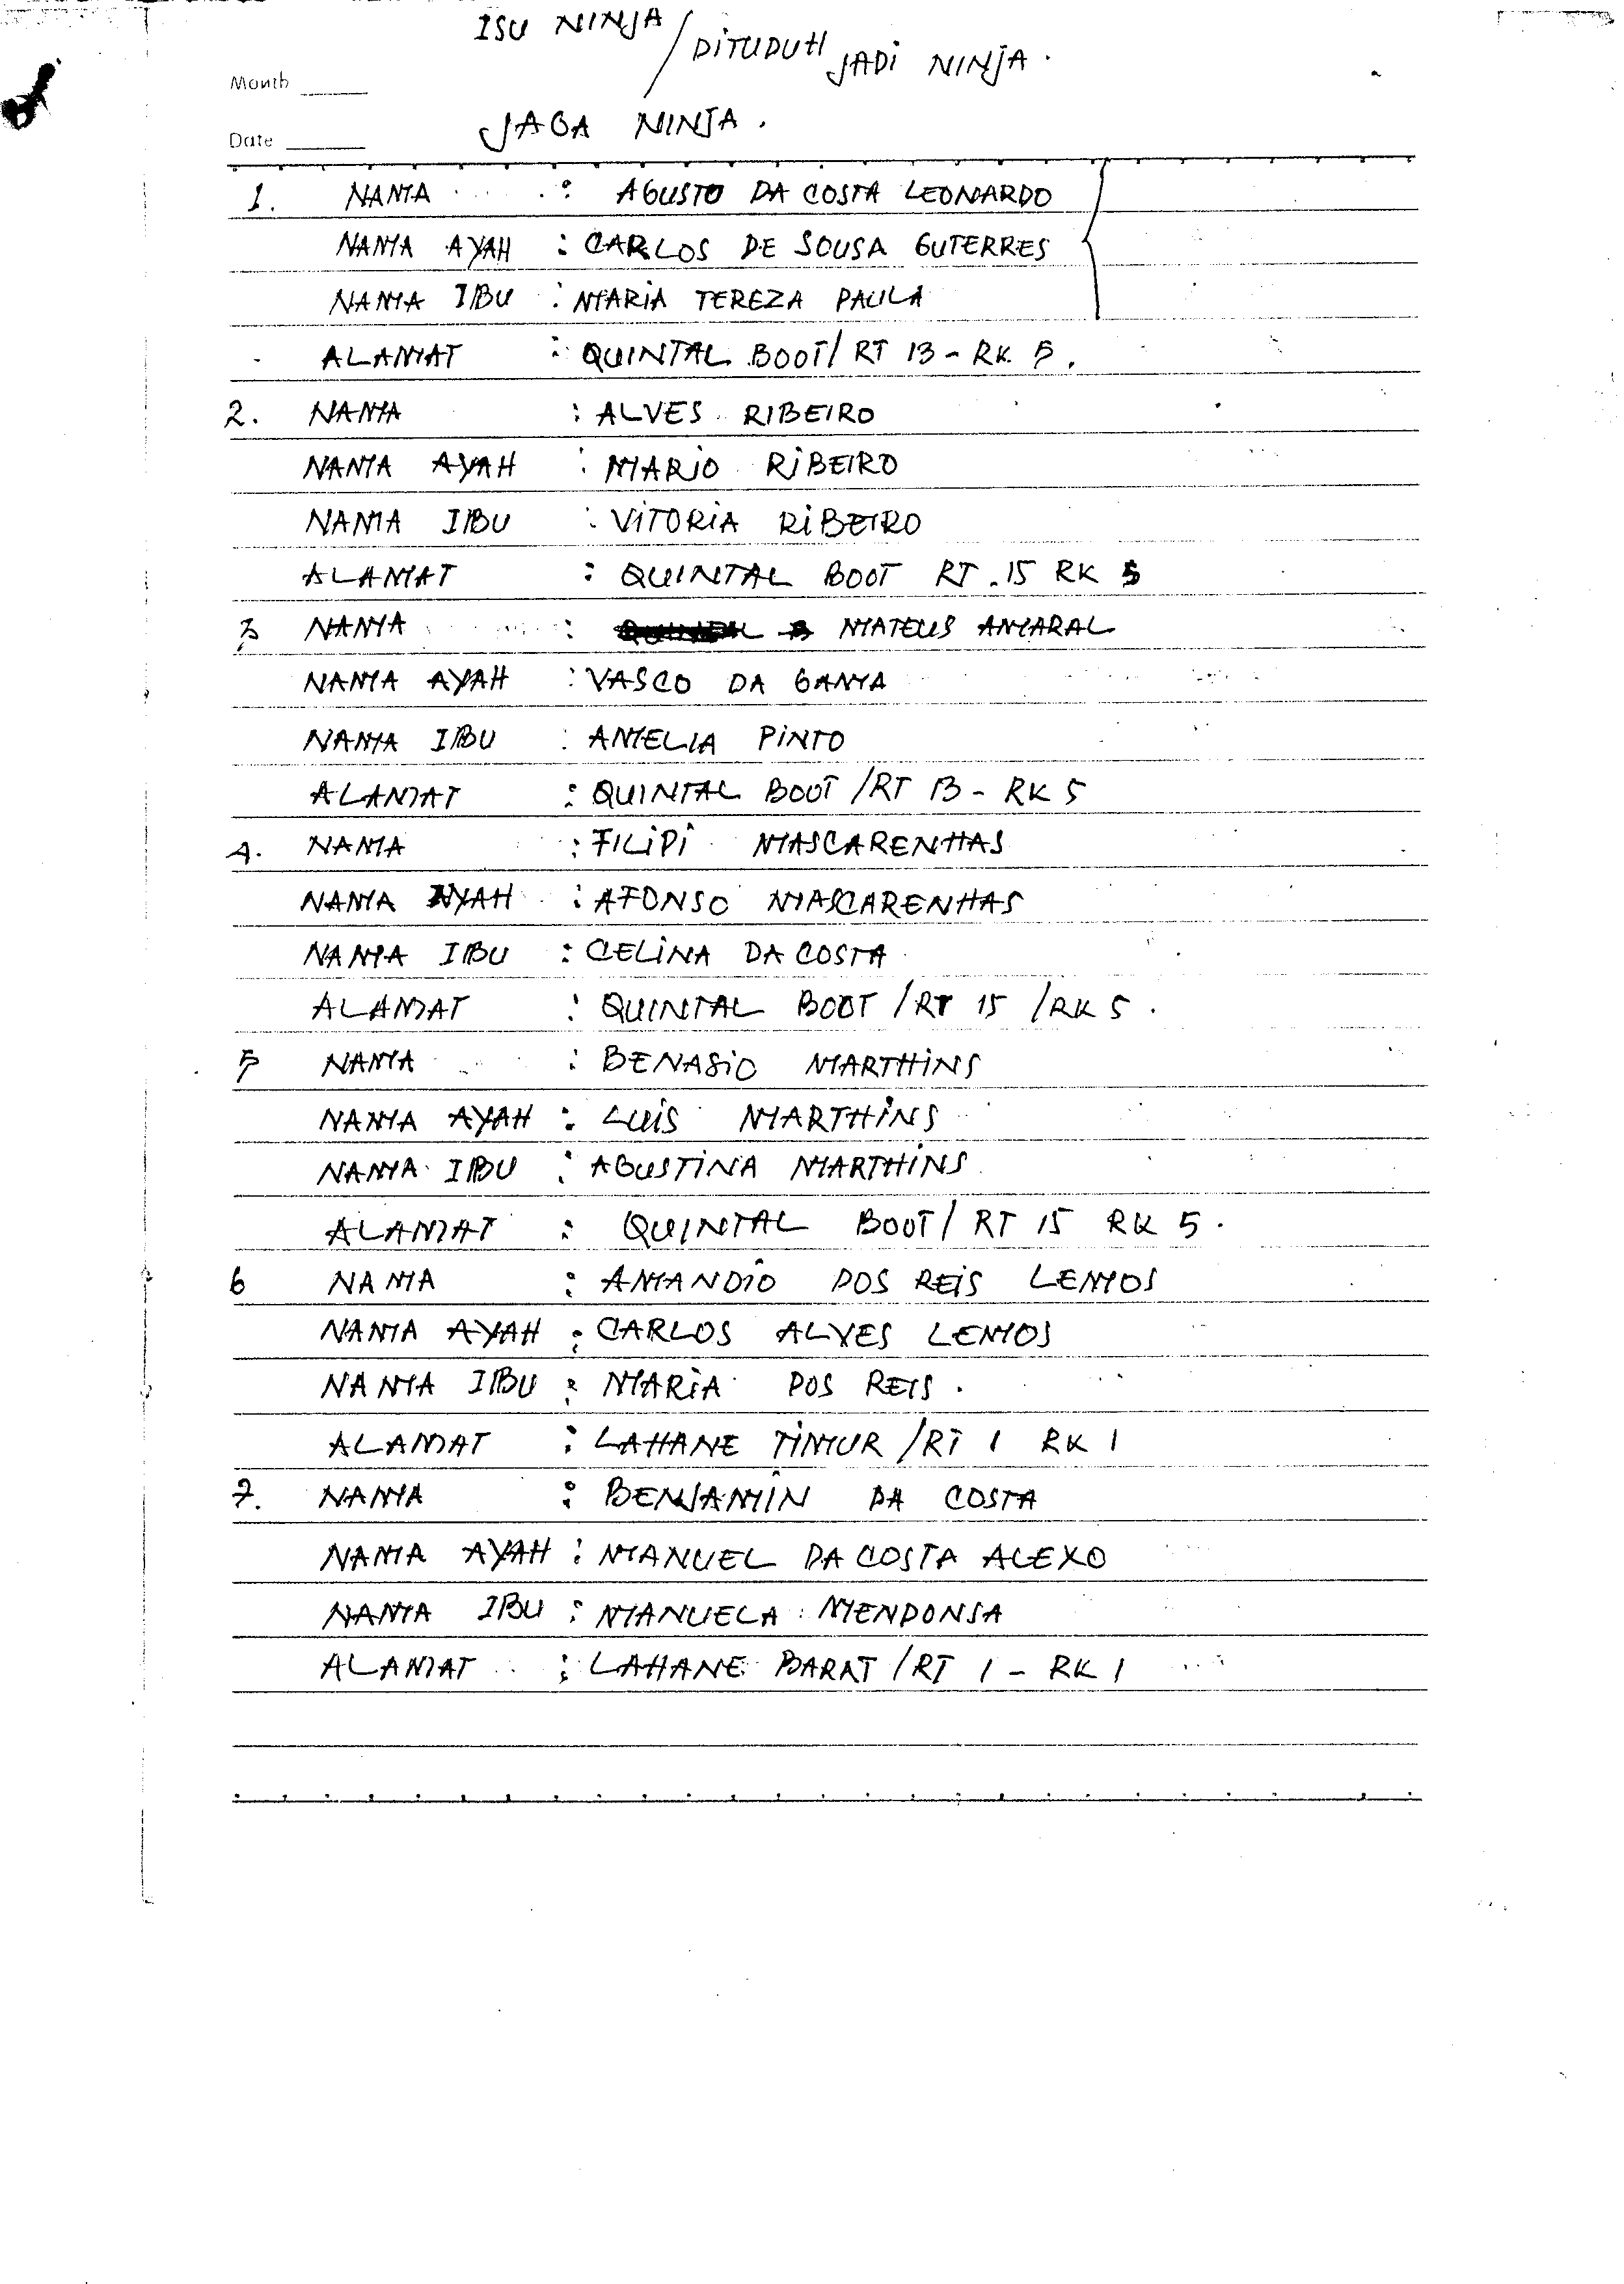 ISU NINJA / DITUDUH JADI NINJA.
Month
JAGA NINJA.
Date
1. NAMA : AGUSTO DA COSTA LEONARDO
NAMA AYAH : CARLOS DE SOUSA GUTERRES
NAMA IBU : MARIA TEREZA PAULA
ALAMAT : QUINTAL BOOT/ RT 13 - RK 5.
2. NAMA : ALVES RIBEIRO
NAMA AYAH : MARIO RIBEIRO
NAMA IBU : VITORIA RIBEIRO
ALAMAT : QUINTAL BOOT RT. 15 RK 5
3. NAMA : MATEUS AMARAL
NAMA AYAH : VASCO DA GAMA
NAMA IBU : AMELIA PINTO
ALAMAT : QUINTAL BOOT /RT 13 - RK 5
4. NAMA : FILIPI MASCARENHAS
NAMA AYAH : AFONSO MASCARENHAS
NAMA IBU : CELINA DA COSTA
ALAMAT : QUINTAL BOOT /RT 15 /RK 5.
5 NAMA : BENASIO MARTHINS
NAMA AYAH : LUIS MARTHINS
NAMA IBU : AGUSTINA MARTHINS
ALAMAT : QUINTAL BOOT/ RT 15 RK 5.
6 NAMA : AMANDIO DOS REIS LEMOS
NAMA AYAH : CARLOS ALVES LEMOS
NAMA IBU : MARIA DOS REIS.
ALAMAT : LAHANE TIMUR /RT 1 RK 1
7. NAMA : BENJAMIN DA COSTA
NAMA AYAH : MANUEL DA COSTA ALEXO
NAMA IBU : MANUELA MENDONSA
ALAMAT : LAHANE BARAT /RT 1 - RK 1